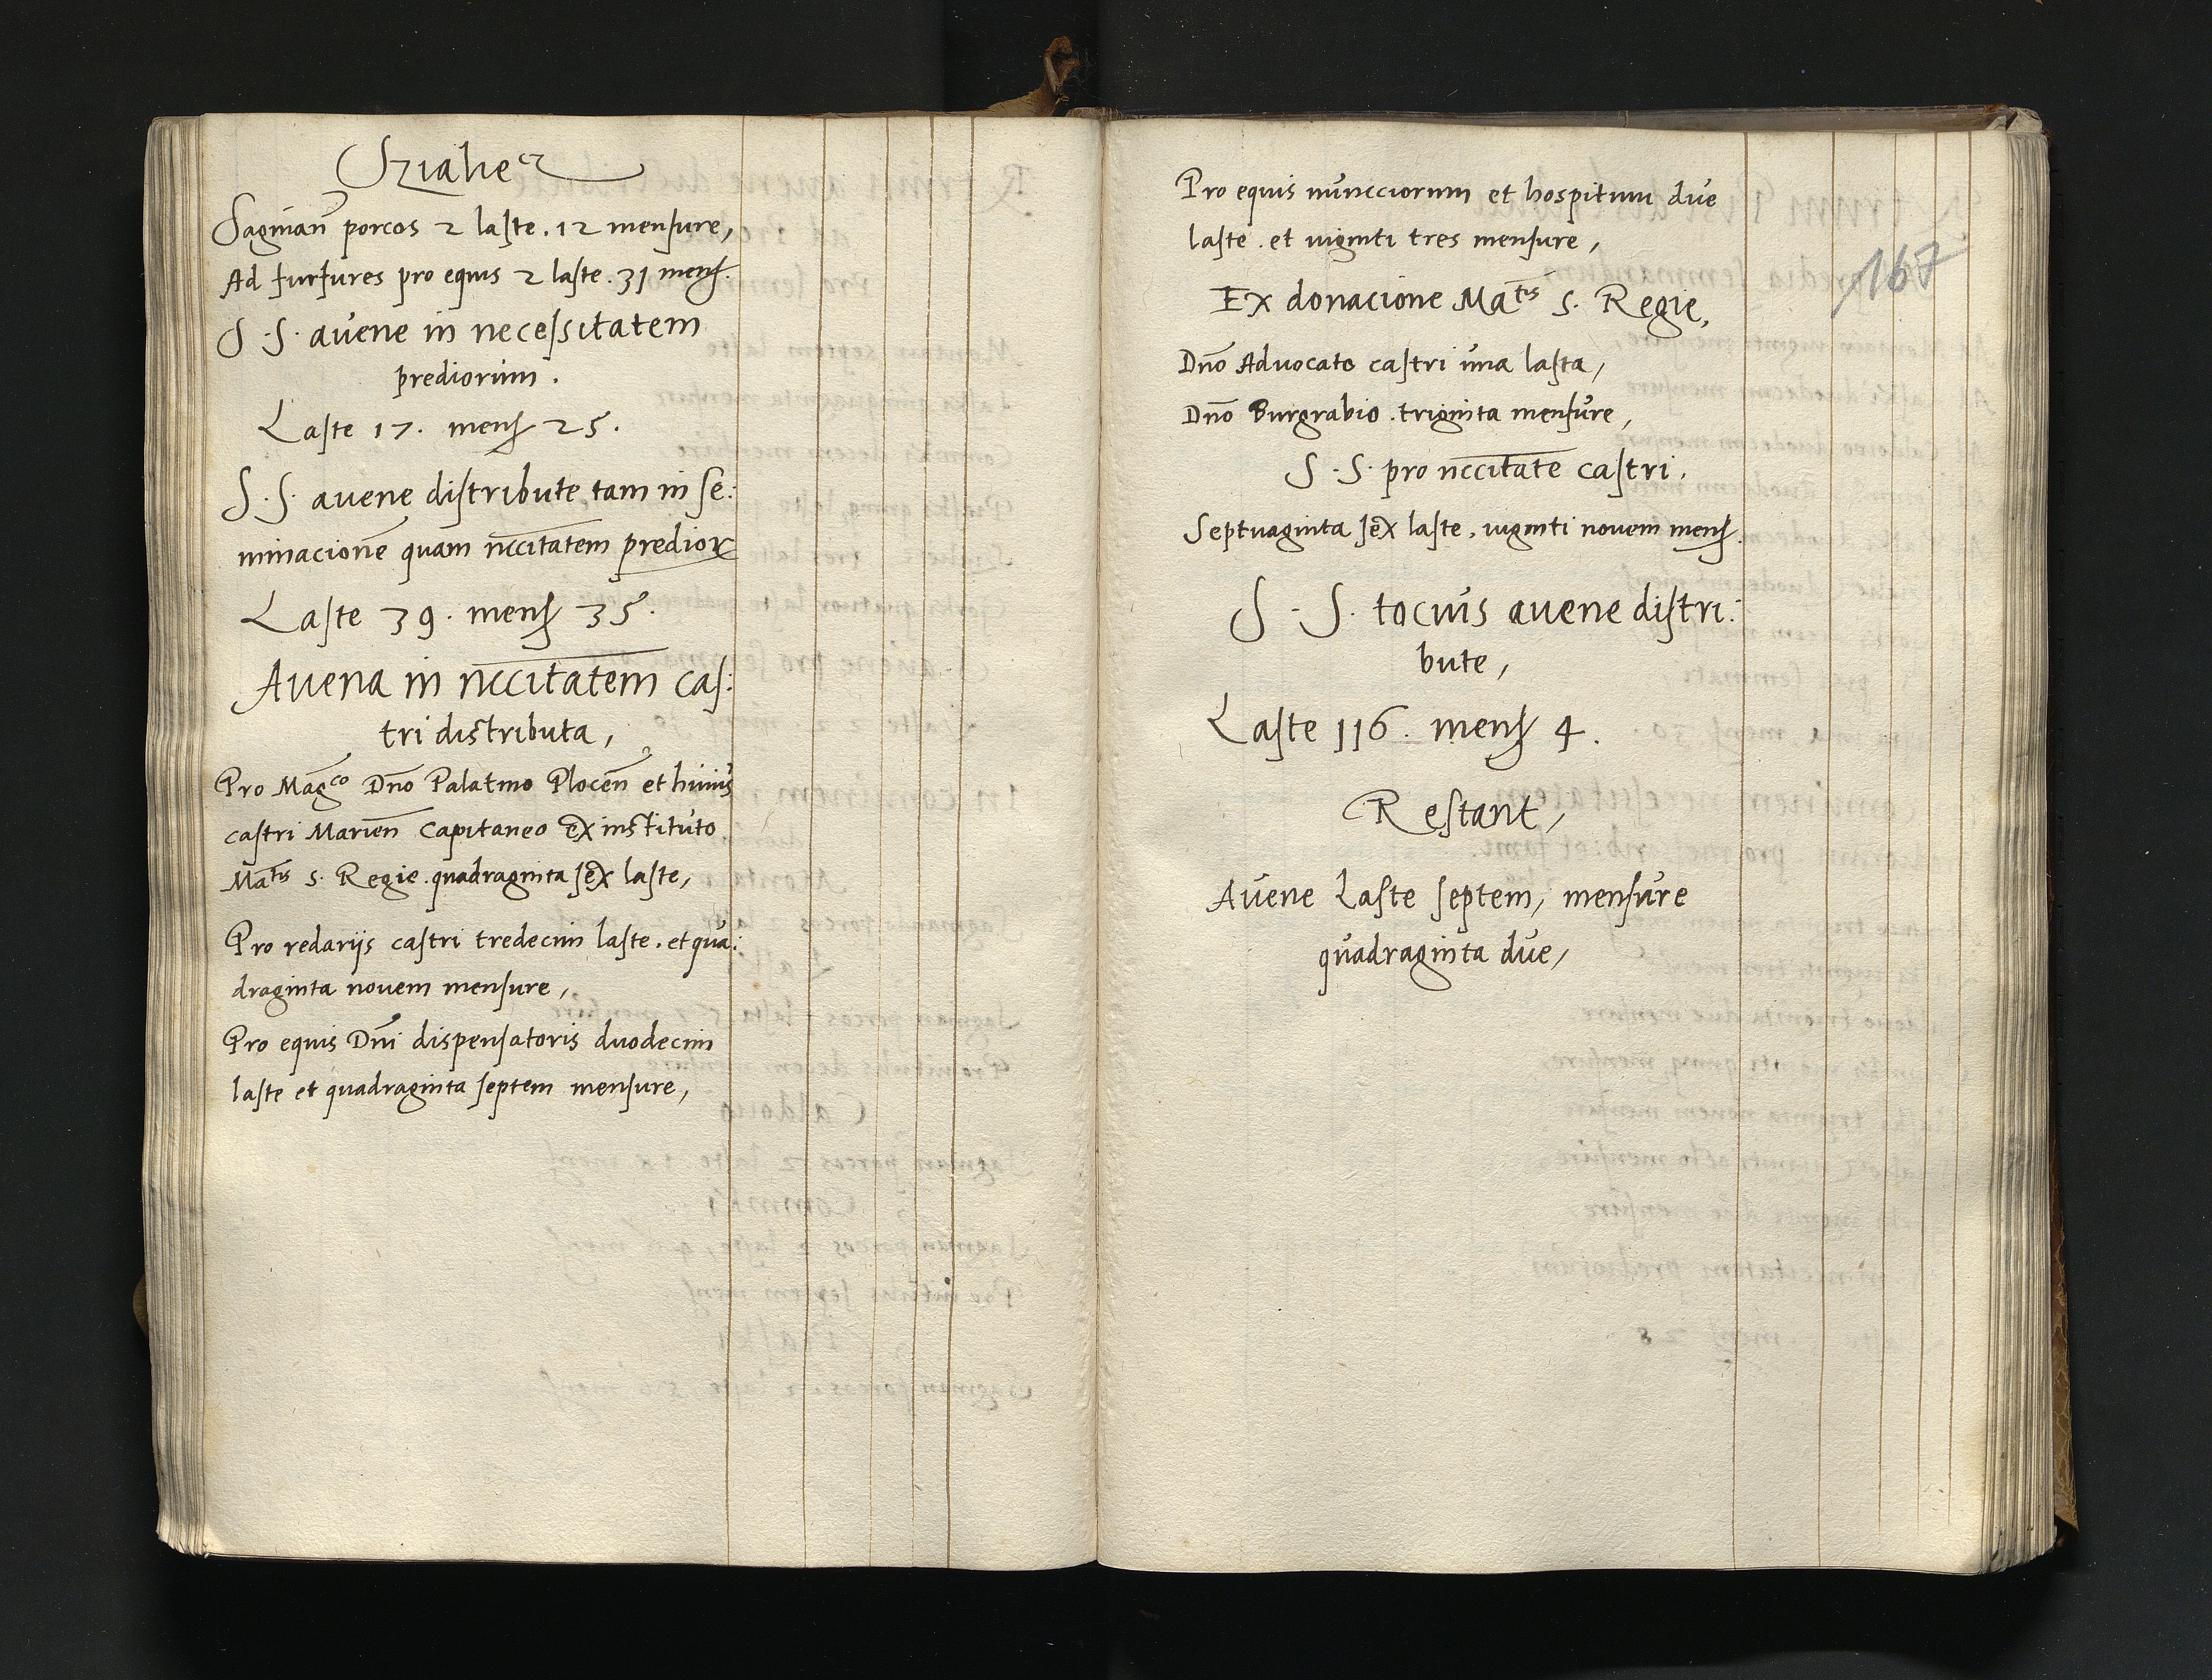 Sziahe
Sagināń porcos 2 laste. 12 mensure,
Ad furfures pro equis 2 laste. 31 mens.
S. S. avene in necessitatem
prediorum.
Laste 17. mens 25.
S. S. avene distribute tam in se:
minacionē quam nccītatem predior
Laste 39. mens 35.
Avena in nccītatem cas:
tri distributa,
Pro Mag̃co Dno Palatino Plocen̄ et huius
castri Marien̄ Capitaneo ex instituto
Mattis S. Regie. quadraginta sex laste,
Pro redarijs castri tredecim laste. et qua:
draginta novem mensure,
Pro equis Dni dispensatoris duodecim
laste et quadraginta septem mensure,
Pro equis nuncciorum et hospitum due
laste. et viginti tres mensure,
167
Ex donacione Mattis S. Regie,
Dno Advocato castri una lasta,
Dno Burgrabio. triginta mensure,
S. S. pro nccītate castri.
Septuaginta sex laste. viginti novem mens.
S. S. tocius avene distri:
bute,
Laste 116. mens 4.
Restant,
Avene Laste septem, mensure
quadraginta due,